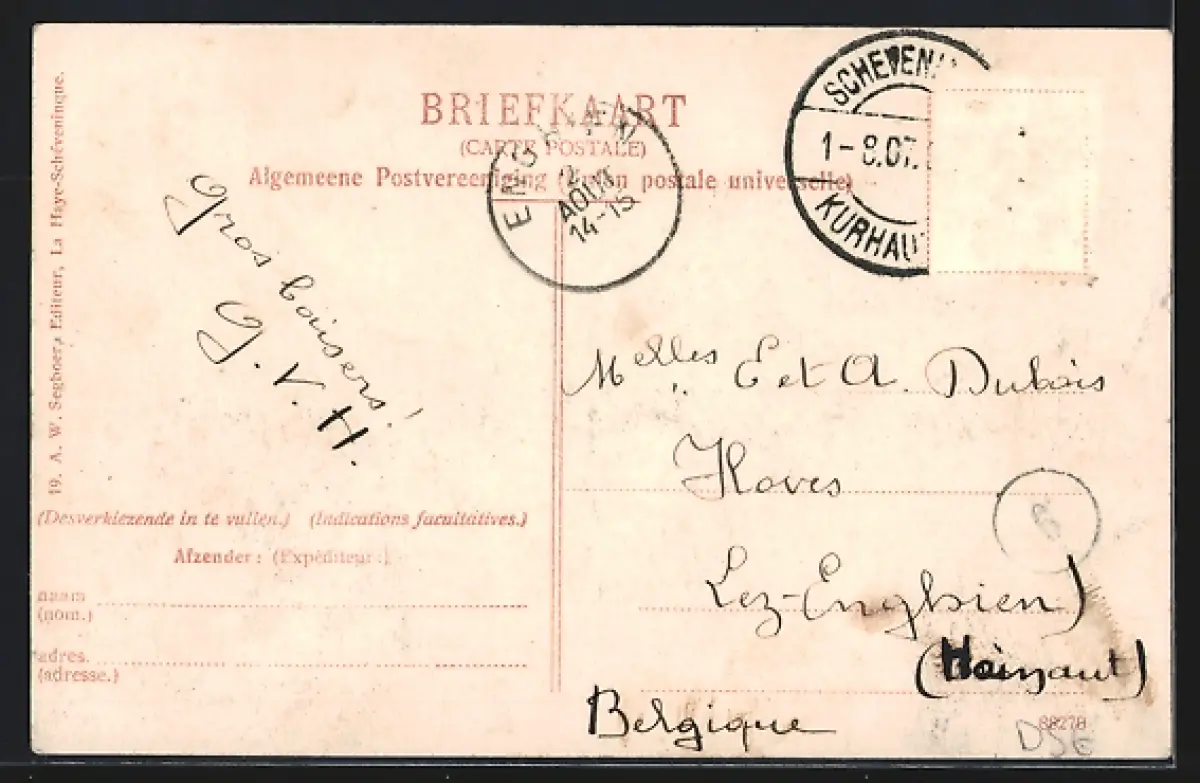 BRIEFKAART
(CARTE POSTALE)
Algemeene Postvereeniging (Union postale universelle)
19. A. W. Segboer, Editeur, La Haye-Schéveningue.
SCHEVENI
1-8.07.
KURHAU
ENGHIEN
2
AOUT
14-15
Gros baisers!
G. V. H.
Melles E et A. Dubois
Hoves
Lez-Enghien)
(Hainaut)
Belgique
(Desverkiezende in te vullen.) (Indications facultatives.)
Afzender: (Expéditeur:)
naam
(nom.)
adres.
(adresse.)
6
88278